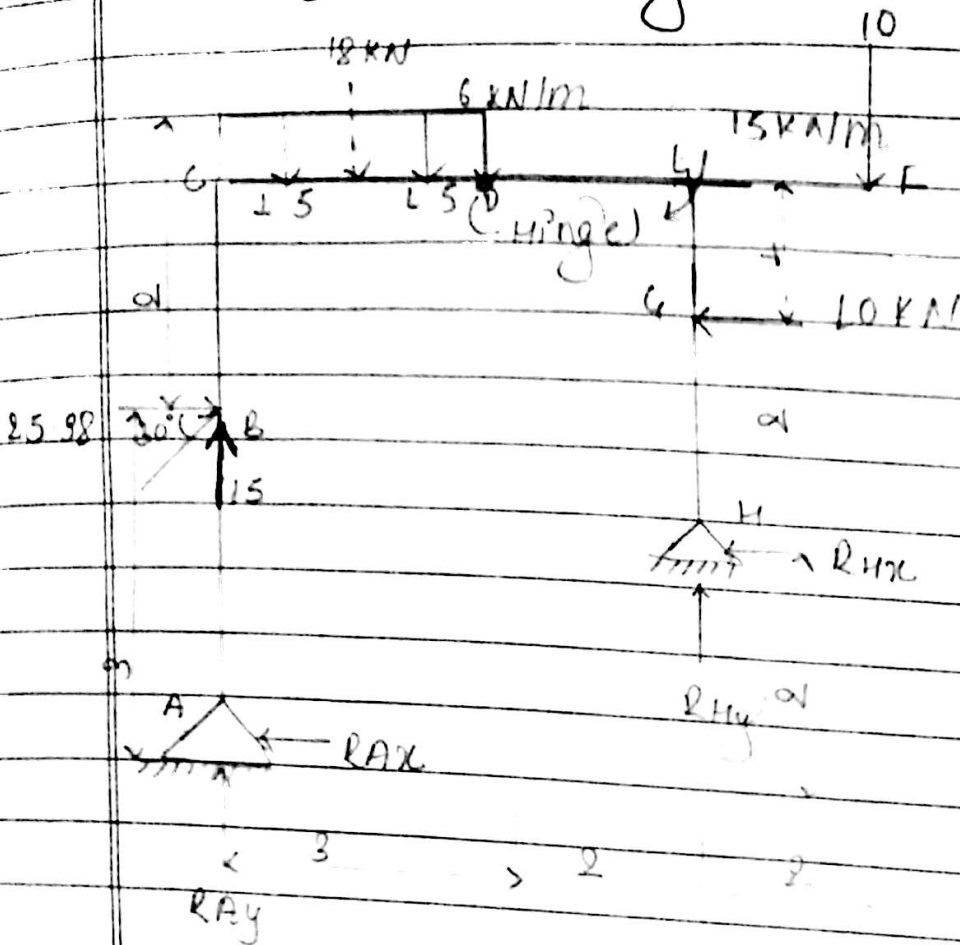 10
18 KN
6 KN/m
15 KN/m
C
1.5
1.5
D
F
(Hinge)
G
10 KN
2
25.98
30°
B
2
15
H
RHx
3
A
RHy
2
RAx
3
2
2
RAy